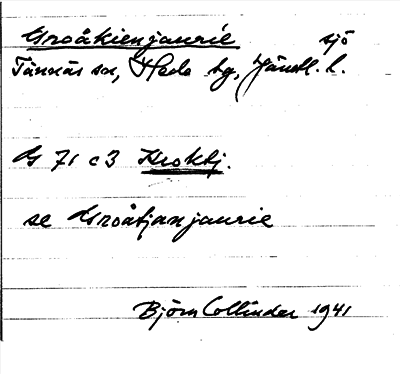 Groåkienjaurie sjö
Tännäs sn, Hede tg, Jämtl. l.
G 71 c 3 Kroktj.
se Groåtjanjaurie
Björn Collinder 1941